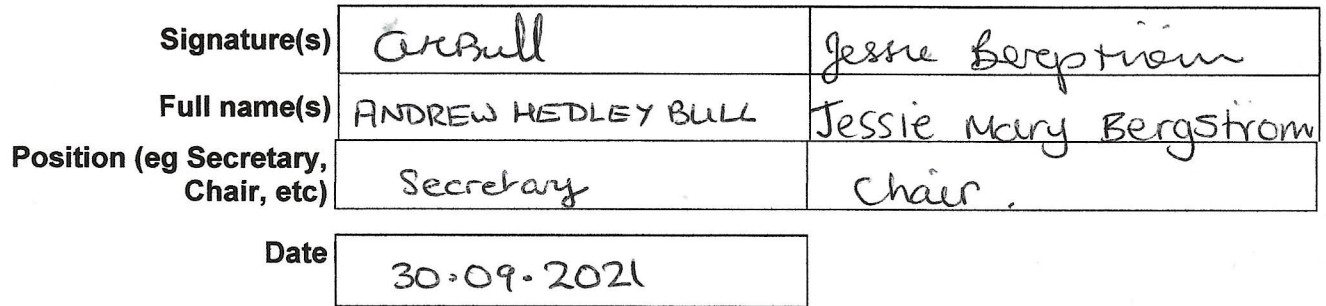 Signature(s) AHBull Jessie Bergström
Full name(s) ANDREW HEDLEY BULL Jessie Mary Bergström
Position (eg Secretary,
Chair, etc) Secretary Chair.
Date 30.09.2021